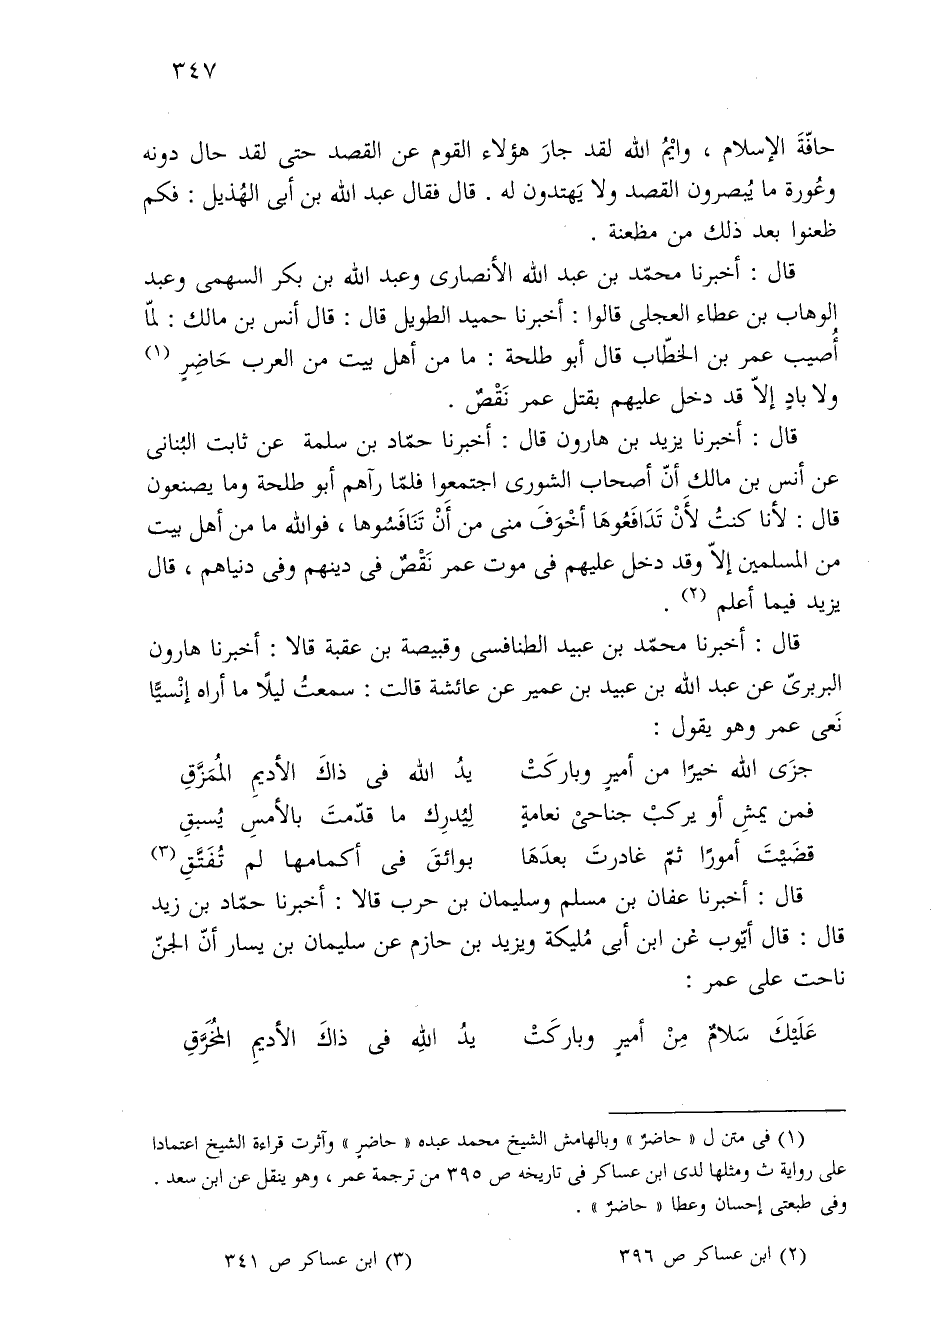 ٣٤٧
حافّةَ الإسلام ، وايْمُ الله لقد جارَ هؤلاء القوم عن القصد حتى لقد حال دونه
وعُورة ما يُبصرون القصد ولا يَهتدون له . قال فقال عبد الله بن أبى الهُذيل : فكم
ظعنوا بعد ذلك من مظعنة .
قال : أخبرنا محمّد بن عبد الله الأنصارى وعبد الله بن بكر السهمى وعبد
الوهاب بن عطاء العجلى قالوا : أخبرنا حميد الطويل قال : قال أنس بن مالك : لمّا
أُصيب عمر بن الخطّاب قال أبو طلحة : ما من أهل بيت من العرب حَاضِرٍ (١)
ولا بادٍ إلاّ قد دخل عليهم بقتل عمر نَقْصٌ .
قال : أخبرنا يزيد بن هارون قال : أخبرنا حمّاد بن سلمة عن ثابت البُنانى
عن أنس بن مالك أنّ أصحاب الشورى اجتمعوا فلمّا رآهم أبو طلحة وما يصنعون
قال : لأنا كنتُ لأَنْ تَدَافَعُوهَا أخْوَفَ منى من أَنْ تَنَافَسُوها ، فوالله ما من أهل بيت
من المسلمين إلاّ وقد دخل عليهم فى موت عمر نَقْصٌ فى دينهم وفى دنياهم ، قال
يزيد فيما أعلم (٢) .
قال : أخبرنا محمّد بن عبيد الطنافسى وقبيصة بن عقبة قالا : أخبرنا هارون
البربرىّ عن عبد الله بن عبيد بن عمير عن عائشة قالت : سمعتُ ليلًا ما أراه إنْسيًّا
نَعى عمر وهو يقول :
جزَى الله خيرًا من أميرٍ وباركَتْ يدُ الله فى ذاكَ الأديمِ المُمَزَّقِ
فمن يمشِ أو يركبْ جناحىْ نعامةٍ لِيُدرِك ما قدّمتَ بالأمسِ يُسبقِ
قضَيْتَ أمورًا ثمّ غادرتَ بعدَهَا بوائقَ فى أكمامها لم تُفَتَّقِ (٣)
قال : أخبرنا عفان بن مسلم وسليمان بن حرب قالا : أخبرنا حمّاد بن زيد
قال : قال أيّوب عَن ابن أبى مُليكة ويزيد بن حازم عن سليمان بن يسار أنّ الجنّ
ناحت على عمر :
عَلَيْكَ سَلامٌ مِنْ أميرٍ وباركَتْ يدُ اللهِ فى ذاكَ الأديمِ المُخَرَّقِ
(١) فى متن ل « حاضرٌ » وبالهامش الشيخ محمد عبده « حاضرٍ » وآثرت قراءة الشيخ اعتمادا
على رواية ث ومثلها لدى ابن عساكر فى تاريخه ص ٣٩٥ من ترجمة عمر ، وهو ينقل عن ابن سعد .
وفى طبعتى إحسان وعطا « حاضرٌ » .
(٢) ابن عساكر ص ٣٩٦ (٣) ابن عساكر ص ٣٤١